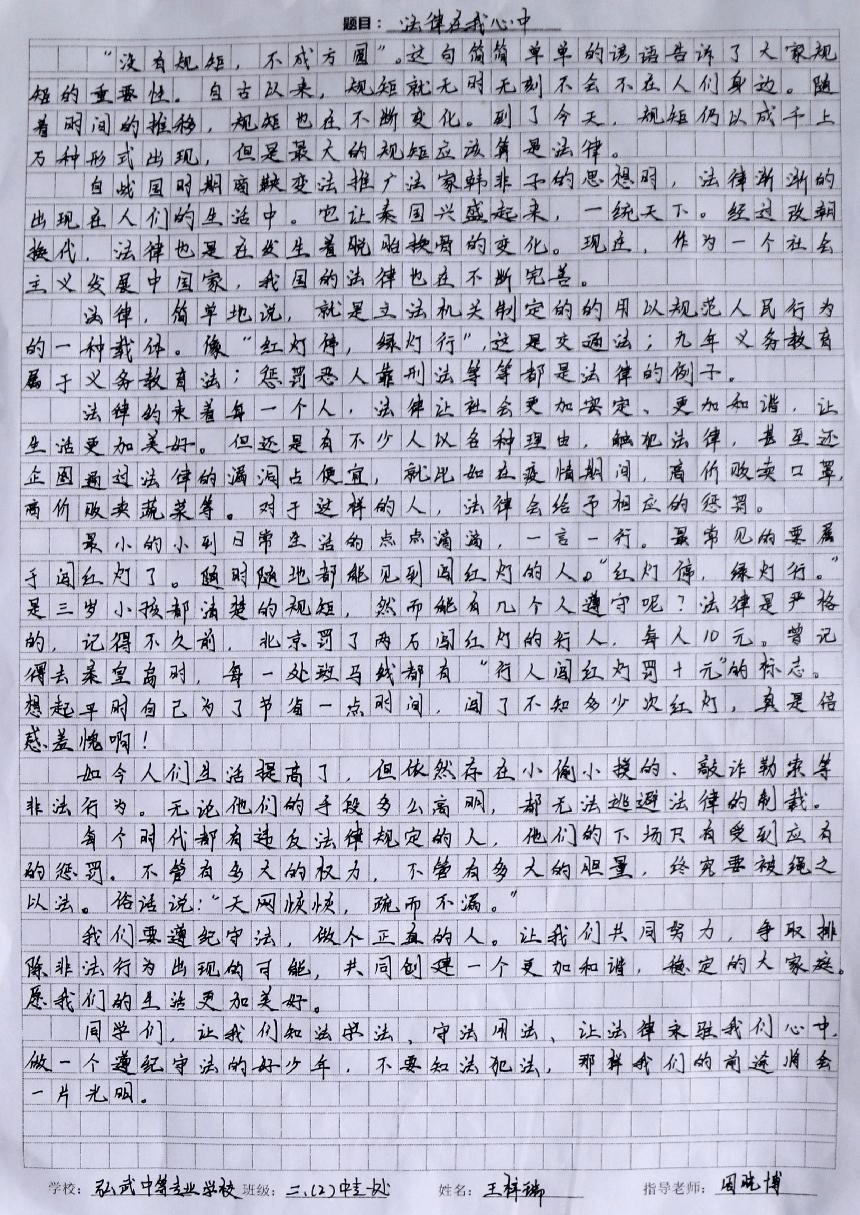 题目：法律在我心中
“没有规矩，不成方圆”。这句简简单单的谚语告诉了大家规
矩的重要性。自古以来，规矩就无时无刻不会不在人们身边。随
着时间的推移，规矩也在不断变化。到了今天，规矩仍以成千上
万种形式出现，但是最大的规矩应该算是法律。
自战国时期商鞅变法推广法家韩非子的思想时，法律渐渐的
出现在人们的生活中。也让秦国兴盛起来，一统天下。经过改朝
换代，法律也是在发生着脱胎换骨的变化。现在，作为一个社会
主义发展中国家，我国的法律也在不断完善。
法律，简单地说，就是立法机关制定的的用以规范人民行为
的一种载体。像“红灯停，绿灯行”，这是交通法；九年义务教育
属于义务教育法；惩罚恶人靠刑法等等都是法律的例子。
法律约束着每一个人，法律让社会更加安定、更加和谐，让
生活更加美好。但还是有不少人以各种理由，触犯法律，甚至还
企图通过法律的漏洞占便宜，就比如在疫情期间，高价贩卖口罩，
高价贩卖蔬菜等。对于这样的人，法律会给予相应的惩罚。
最小的小到日常生活的点点滴滴，一言一行。最常见的要属
于闯红灯了。随时随地都能见到闯红灯的人。“红灯停，绿灯行。”
是三岁小孩都清楚的规矩，然而能有几个人遵守呢？法律是严格
的，记得不久前，北京罚了两万闯红灯的行人，每人10元。曾记
得去秦皇岛时，每一处斑马线都有“行人闯红灯罚十元”的标志。
想起平时自己为了节省一点时间，闯了不知多少次红灯，真是倍
感羞愧啊！
如今人们生活提高了，但依然存在小偷小摸的、敲诈勒索等
非法行为。无论他们的手段多么高明，都无法逃避法律的制裁。
每个时代都有违反法律规定的人，他们的下场只有受到应有
的惩罚。不管有多大的权力，不管有多大的胆量，终究要被绳之
以法。俗话说：“天网恢恢，疏而不漏。”
我们要遵纪守法，做个正直的人。让我们共同努力，争取排
除非法行为出现的可能，共同创建一个更加和谐，稳定的大家庭。
愿我们的生活更加美好。
同学们，让我们知法学法、守法用法、让法律永驻我们心中，
做一个遵纪守法的好少年，不要知法犯法，那样我们的前途将会
一片光明。
学校：弘武中等专业学校 班级：三、(2) 姓名：王梓瑞 指导老师：周晓博